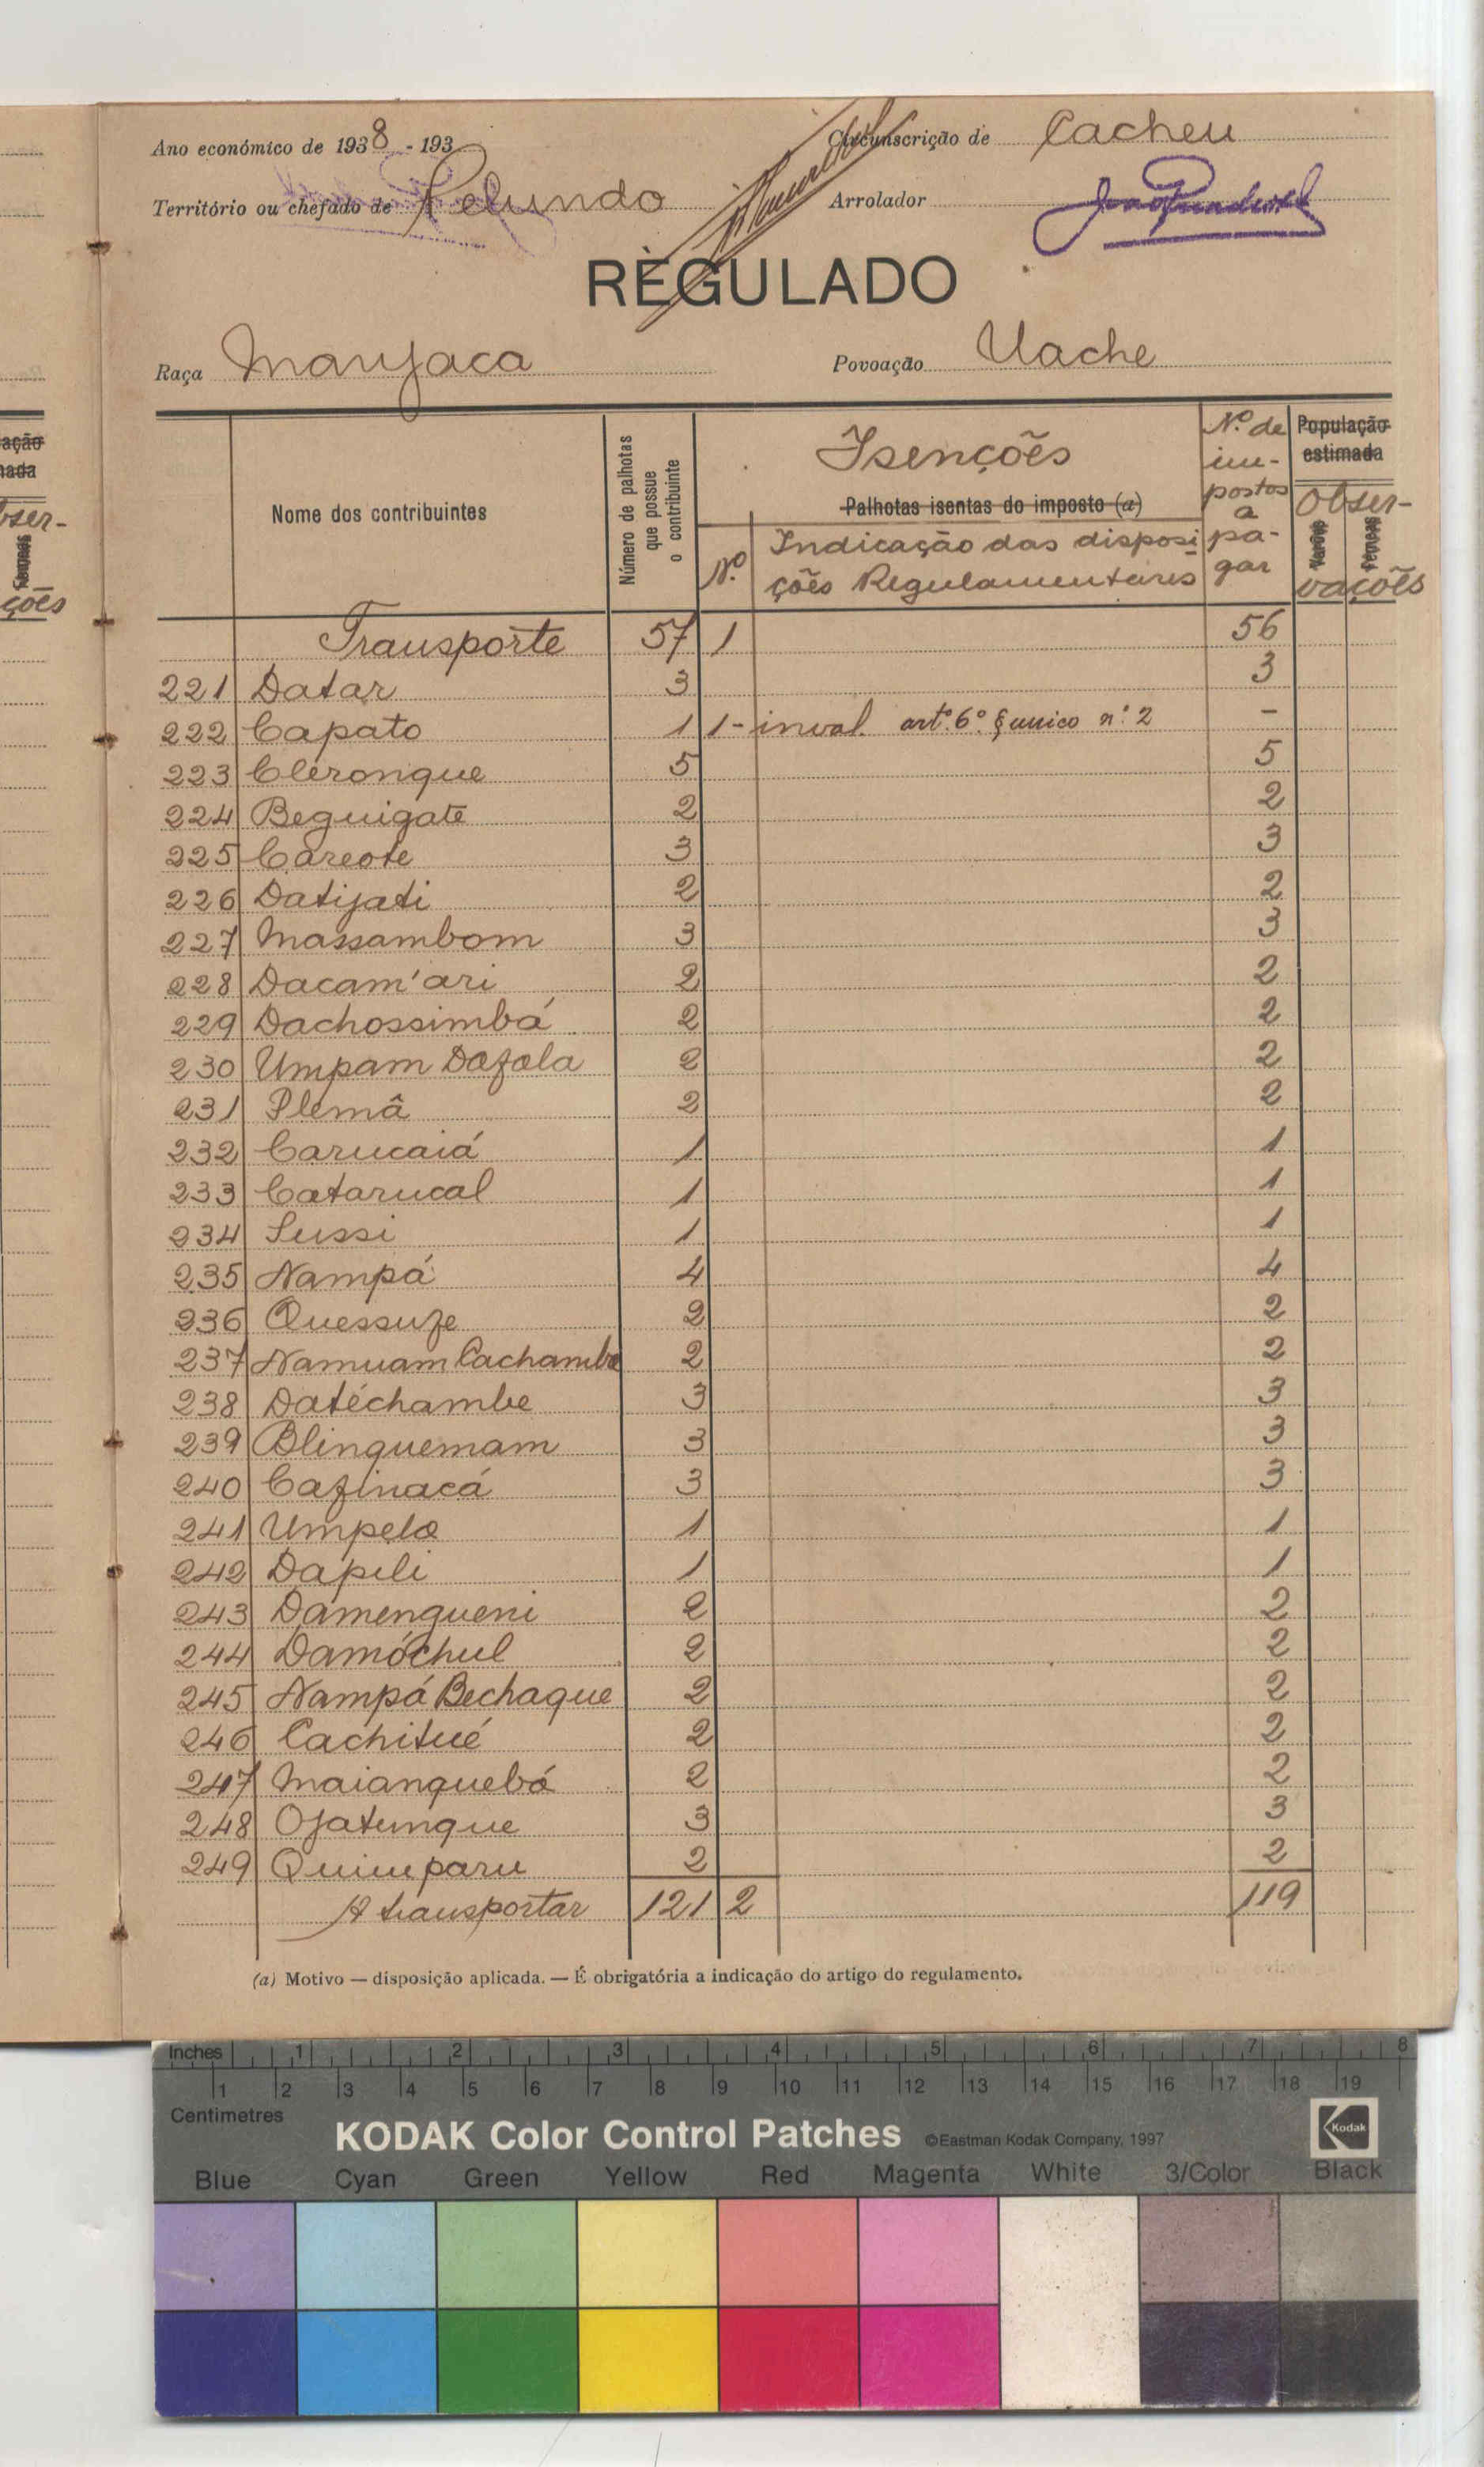 Ano económico de 1938 - 193
Circunscrição de Cacheu
Território ou chefado de Pelundo
Arrolador
RÈGULADO
Raça Manjaca
Povoação Uache
Nome dos contribuintes
Número de palhotas que possue o contribuinte
Isenções
Palhotas isentas do imposto (a)
N.º
Indicação das disposições Regulamentares
N.º de impostos a pagar
População estimada
Varões
Fêmeas
Observações
Transporte 57 1 56
221 Datar 3 3
222 Capato 1 1 - inval. art.º 6.º § unico n.º 2 -
223 Cléronque 5 5
224 Beguigate 2 2
225 Careote 3 3
226 Datijati 2 2
227 Massambom 3 3
228 Dacam'ari 2 2
229 Dachossimbá 2 2
230 Umpam Dafala 2 2
231 Plemâ 2 2
232 Carucaiá 1 1
233 Catarucal 1 1
234 Sussi 1 1
235 Nampá 4 4
236 Quessuze 2 2
237 Namuam Cachambe 2 2
238 Datéchambe 3 3
239 Blinquemam 3 3
240 Cafinacá 3 3
241 Umpela 1 1
242 Dapili 1 1
243 Damengueni 2 2
244 Damóchul 2 2
245 Nampá Bechaque 2 2
246 Cachitué 2 2
247 Maianquebá 2 2
248 Ojatunque 3 3
249 Quimparu 2 2
A transportar 121 2 119
(a) Motivo — disposição aplicada. — É obrigatória a indicação do artigo do regulamento.
Inches 1 2 3 4 5 6 7 8
1 2 3 4 5 6 7 8 9 10 11 12 13 14 15 16 17 18 19
Centimetres
KODAK Color Control Patches ©Eastman Kodak Company, 1997 Kodak
Blue Cyan Green Yellow Red Magenta White 3/Color Black